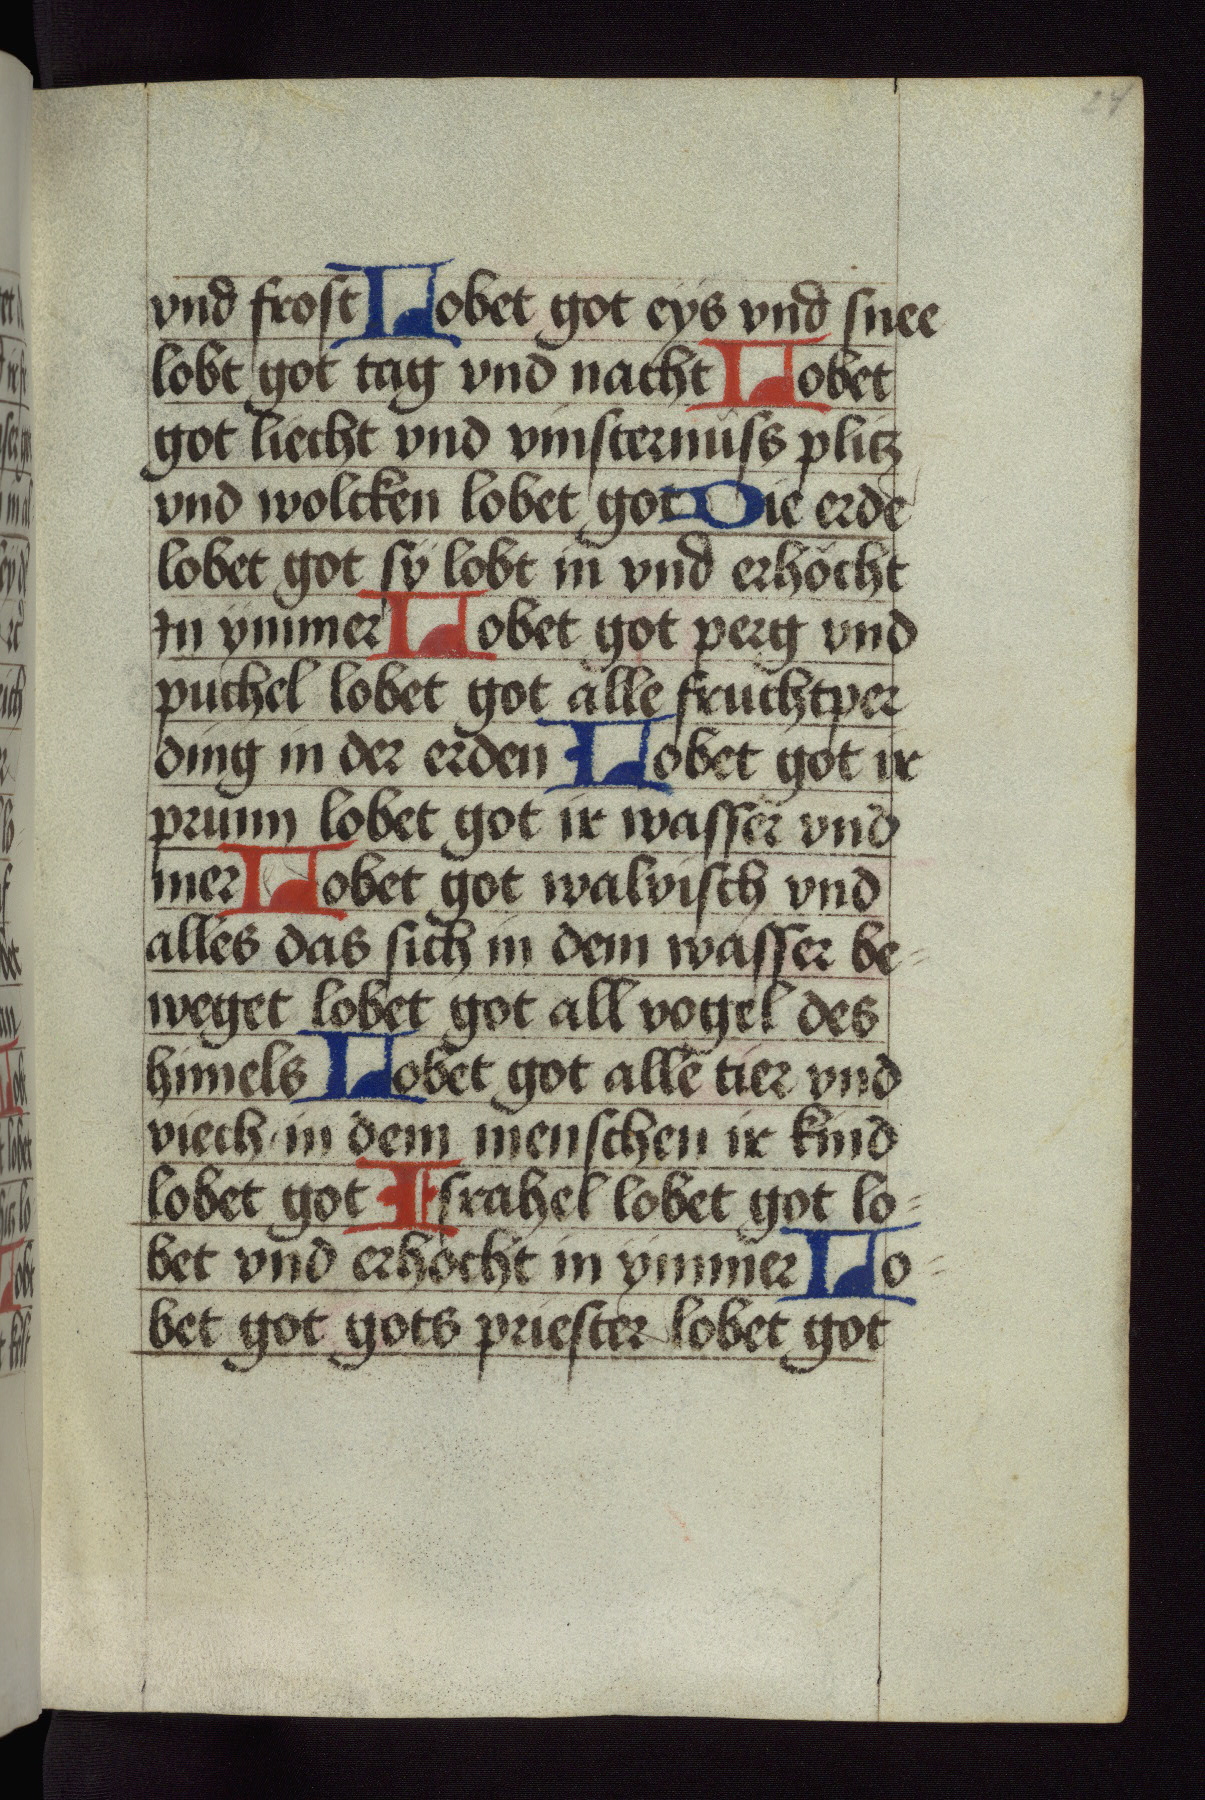 24
vnd frost Lobet got eys vnd snee
lobt got tag vnd nacht Lobet
got liecht vnd vinsternüss plitz
vnd wolcken lobet got Die erde
lobet got sÿ lobt in vnd erhöcht
In ÿmmer Lobet got perg vnd
puchel lobet got alle fruchtper
ding in der erden Lobet got ir
prunn lobet got ir wasser vnd
mer Lobet got walvisch vnd
alles das sich in dem wasser be-
weget lobet got all vogel des
himels Lobet got alle tier vnd
viech in dem menschen ir kind
lobet got Israhel lobet got lo-
bet vnd erhöcht in ÿmmer Lo-
bet got gots priester lobet got